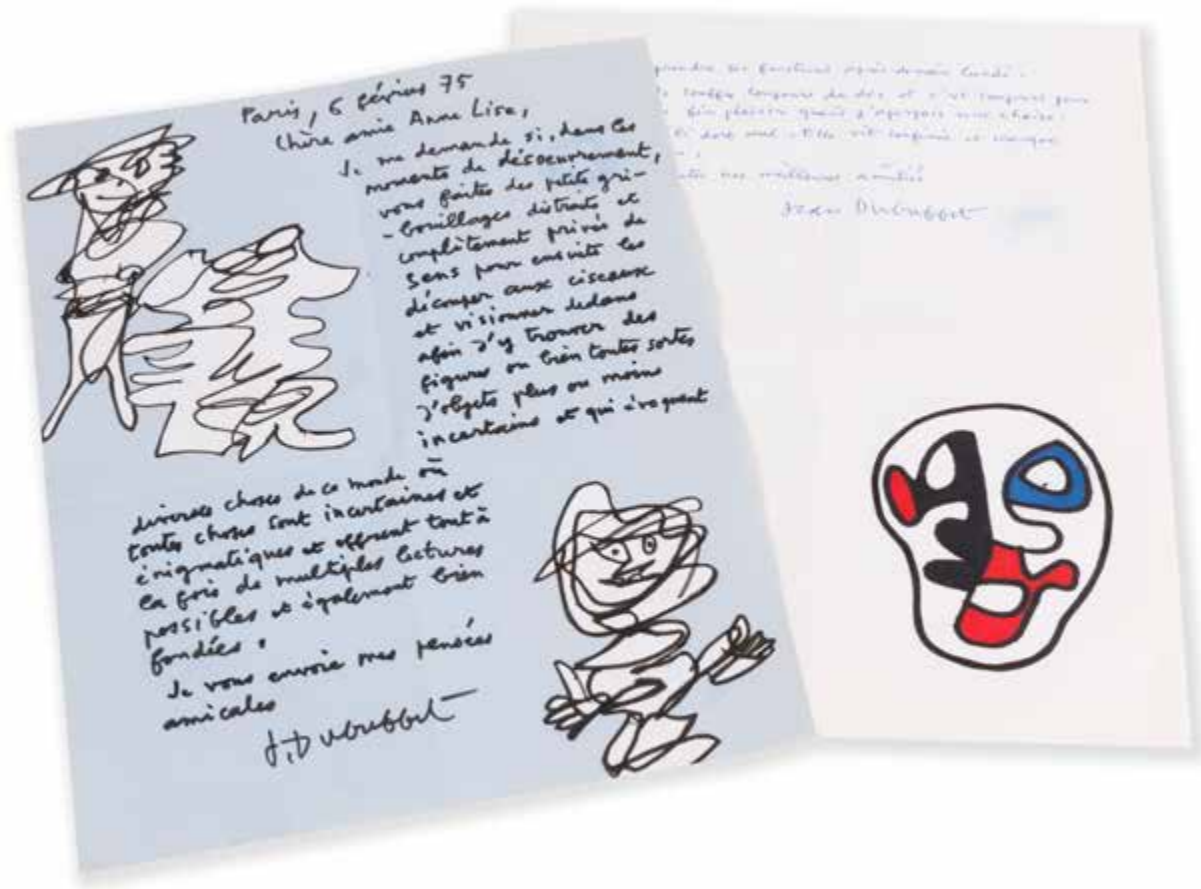 Paris, 6 février 75
Chère amie Anne Lise,
Je me demande si, dans les
moments de désoeuvrement,
vous faites des petits gri-
-bouillages distraits et
complètement privés de
sens pour ensuite les
découper aux ciseaux
et visionner dedans
afin d'y trouver des
figures ou bien toutes sortes
d'objets plus ou moins
incertains et qui évoquent
diverses choses de ce monde où
toutes choses sont incertaines et
énigmatiques et offrent tout à
la fois de multiples lectures
possibles et également bien
fondées.
Je vous envoie mes pensées
amicales
J. Dubuffet
toujours du dos et c'est toujours pour
bien plaisir quand
meilleures amitiés
Jean Dubuffet